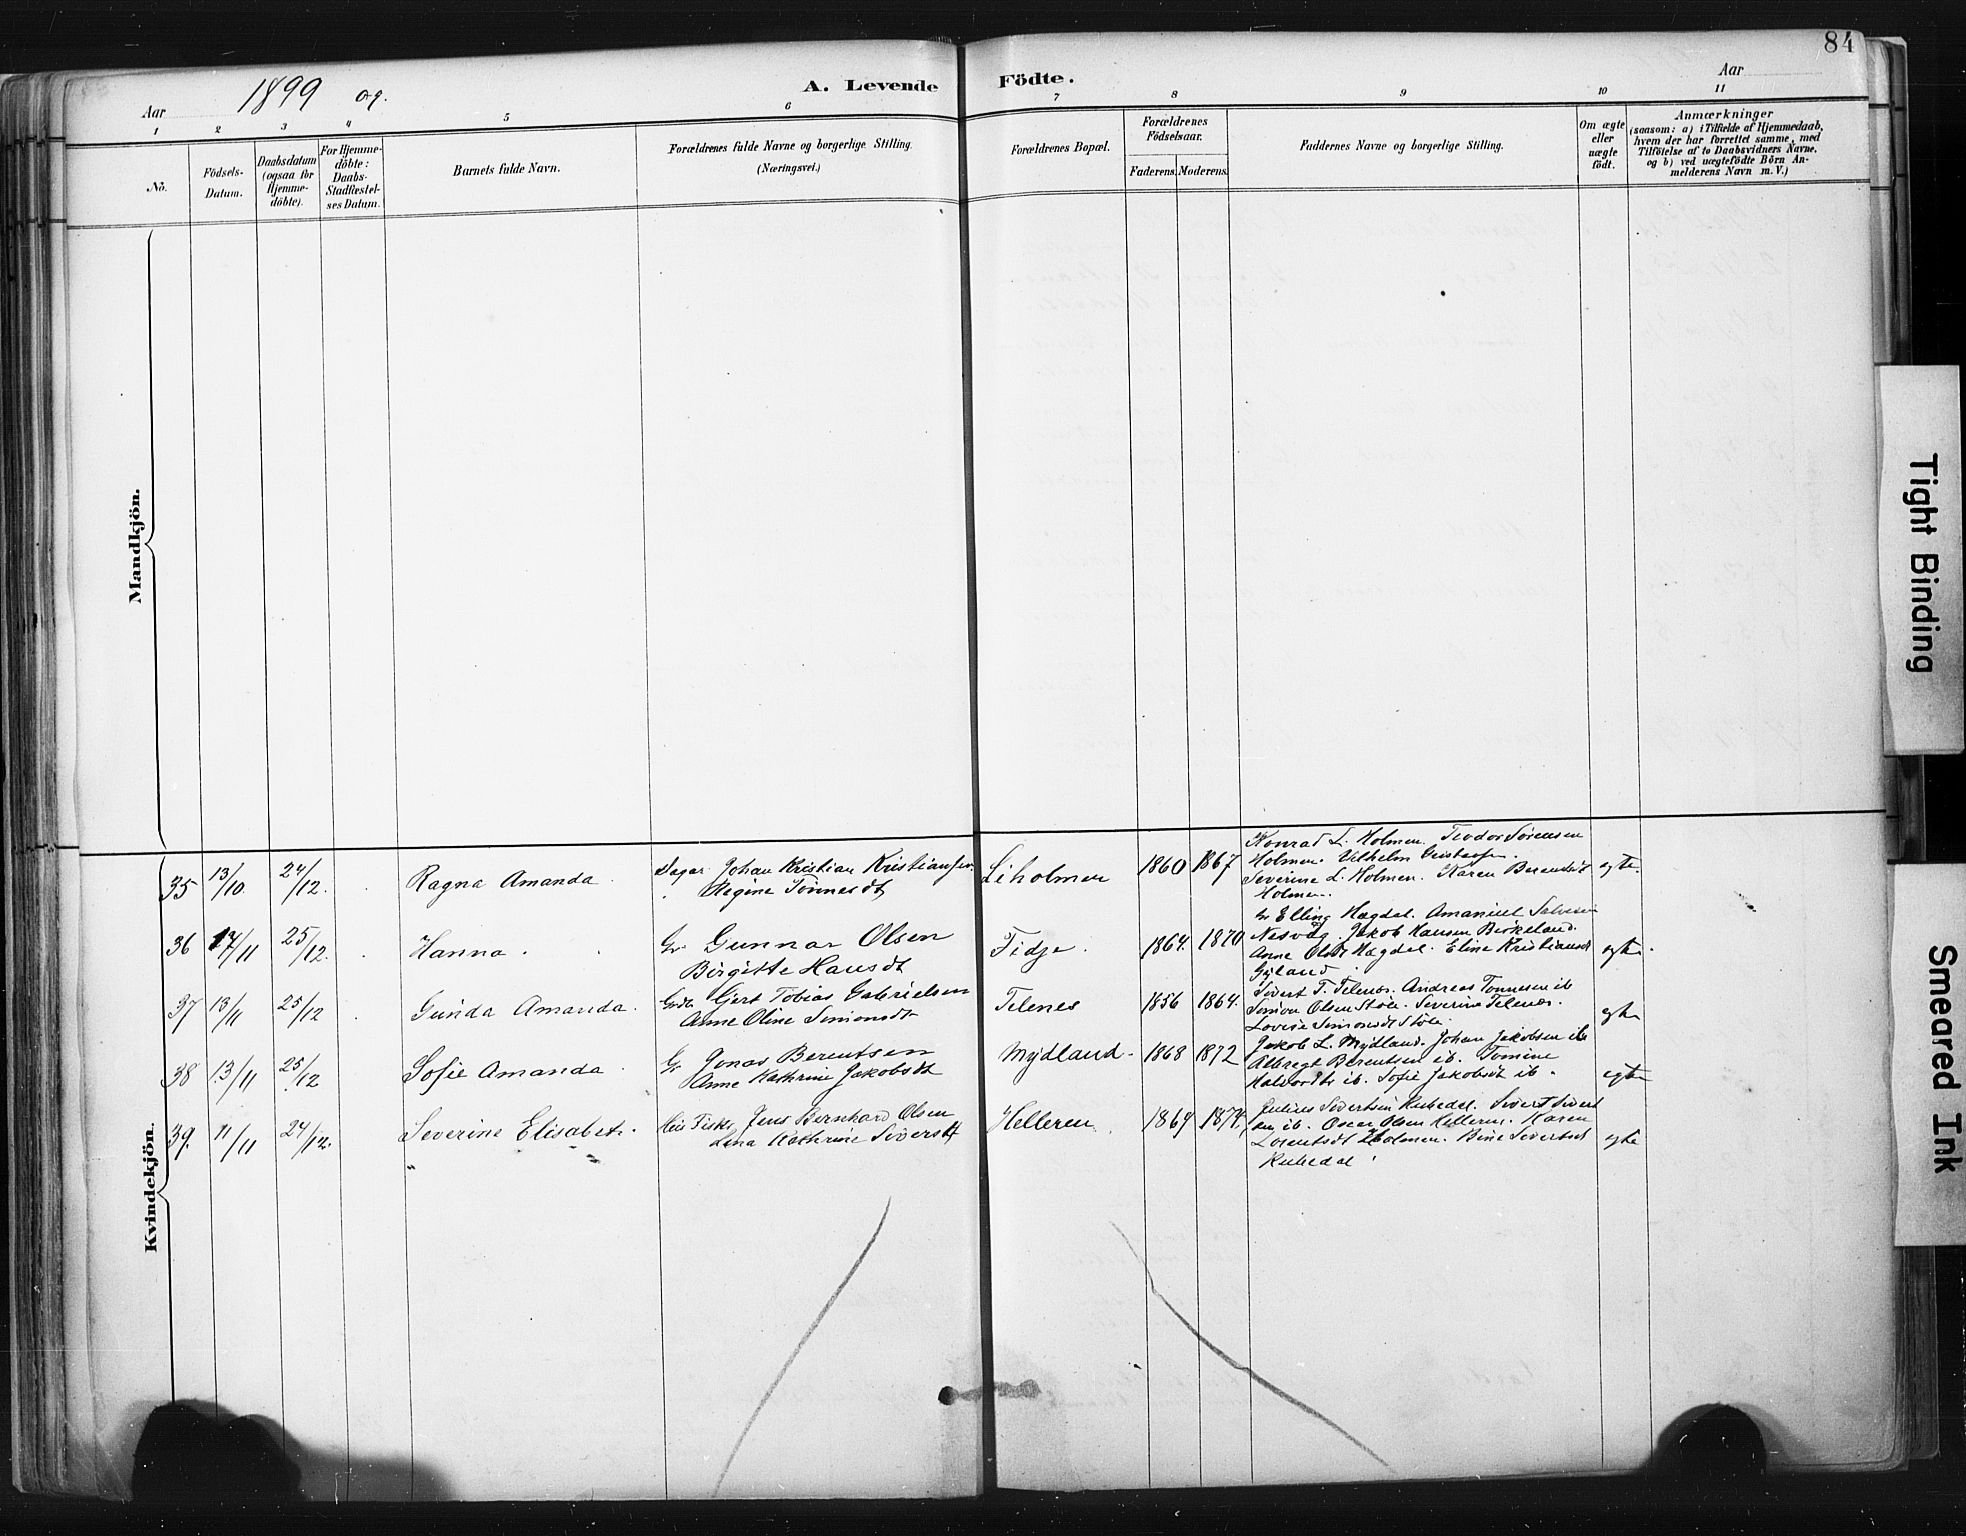 84
Aar 1899 og.
A. Levende Födte.
Aar
1 2 3 4 5 6 7 8 9 10 11
No.
Födsels-
Datum.
Daabsdatum
(ogsaa for
Hjemme-
döbte).
For Hjemme-
döbte:
Daabs-
Stadfæstel-
ses Datum.
Barnets fulde Navn.
Forældrenes fulde Navne og borgerlige Stilling.
(Næringsvei.)
Forældrenes Bopæl.
Forældrenes
Födselsaar.
Faderens. Moderens.
Faddernes Navne og borgerlige Stilling.
Om ægte
eller
uægte
födt.
Anmærkninger
(saasom: a) i Tilfælde af Hjemmedaab,
hvem der har forrettet samme, med
Tilföielse af to Daabsvidners Navne,
og b) ved uægtefödte Börn An-
melderens Navn m. V.)
Mandkjön.
Kvindekjön.
35 13/10 24/12. Ragna Amanda. Johan Kristian Kristiansen
Regine Tönnesdt
Liholmen 1860 1867
Konrad L. Holmen. Teodor Sörensen
Holmen. Vilhelm
Severine L. Holmen. Karen Berentsdt
Holmen.
egte.
36 17/11 25/12. Hanna. Gr Gunnar Olsen
Birgitte Hansdt
Fidje. 1864. 1870
Gr Elling Hægdal. Amaniel Salvesen
Nesvåg. Jakob Hansen Birkeland.
Anne Olsdt Hægdal. Eline Kristiansdt
Gyland.
egte.
37 13/11 25/12 Gunda Amanda. Gjert Tobias Gabrielsen
Anne Oline Simonsdt
Telenes 1856 1864.
Sivert T. Telenes. Andreas Tönnesen ib
Simon Olsen Stöle. Severine Telenes.
Lovise Simonsdt Stöle
egte
38 13/11 25/12 Sofie Amanda. Gr Jonas Berentsen
Anne Kathrine Jakobsdt
Mydland. 1868 1872
Jakob L. Mydland. Johan Jakobsen ib
Albregt Berentsen ib. Tomine
Halvorsdt ib. Sofie Jakobsdt ib.
egte
39. 11/11 24/12. Severine Elisabet. Jens Bernhard Olsen
Lina Kathrine Siversdt
Helleren. 1869 1874.
Julius Sivertsen Rukedal. Sivert Sivert
sen ib. Oscar Olsen Helleren. Karen
Lorentsdt Holmen. Bine Sivertsdt
Rukedal.
egte
Tight Binding
Smeared Ink